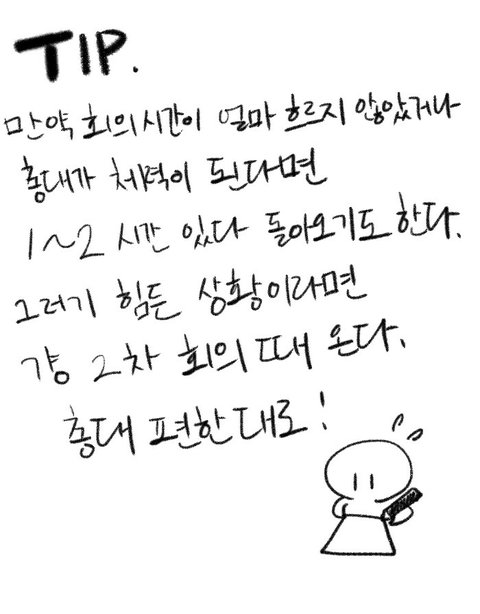 TIP.
만약 회의시간이 얼마 흐르지 않았거나
총대가 체력이 된다면
1~2 시간 있다 돌아오기도 한다.
그러기 힘든 상황이라면
걍 2차 회의 때 온다.
총대 편한대로!